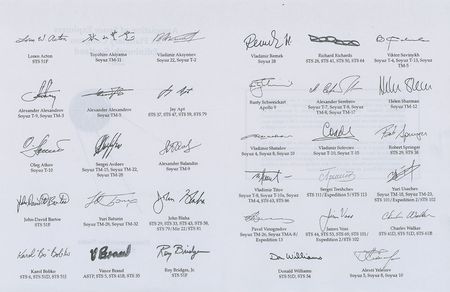 Loren Acton
STS 51F
Toyohiro Akiyama
Soyuz TM-11
Vladimir Aksyonov
Soyuz 22, Soyuz T-2
Alexander Alexandrov
Soyuz T-9, Soyuz TM-3
Alexander Alexandrov
Soyuz TM-5
Jay Apt
STS 37, STS 47, STS 59, STS 79
Oleg Atkov
Soyuz T-10
Sergei Avdeev
Soyuz TM-15, Soyuz TM-22,
Soyuz TM-28
Alexander Balandin
Soyuz TM-9
John-David Bartoe
STS 51F
Yuri Baturin
Soyuz TM-28, Soyuz TM-32
John Blaha
STS 29, STS 33, STS 43, STS 58,
STS 79/Mir 22/STS 81
Karol J Bobko
Karol Bobko
STS 6, STS 51D, STS 51J
V Brand
Vance Brand
ASTP, STS 5, STS 41B, STS 35
Roy Bridges
Roy Bridges, Jr.
STS 51F
Vladimir Remek
Soyuz 28
Richard Richards
STS 28, STS 41, STS 50, STS 64
Viktor Savinykh
Soyuz T-4, Soyuz T-13, Soyuz
TM-5
Rusty Schweickart
Apollo 9
Alexander Serebrov
Soyuz T-7, Soyuz T-8, Soyuz
TM-8, Soyuz TM-17
Helen Sharman
Soyuz TM-12
Vladimir Shatalov
Soyuz 4, Soyuz 8, Soyuz 10
Vladimir Solovyev
Soyuz T-10, Soyuz T-15
Robert Springer
STS 29, STS 38
Vladimir Titov
Soyuz T-8, Soyuz T-10A, Soyuz
TM-4, STS 63, STS 86
Sergei Treshchev
STS 111/Expedition 5/STS 113
Yuri Usachev
Soyuz TM-18, Soyuz TM-23,
STS 101/STS 102/Expedition 2/STS 102
Pavel Vinogradov
Soyuz TM-26, Soyuz TMA-8/
Expedition 13
James Voss
STS 44, STS 53, STS 69, STS 101/
Expedition 2/STS 102
Charles Walker
Charles Walker
STS 41D, STS 51D, STS 61B
Don Williams
Donald Williams
STS 51D, STS 34
Alexei Yeliseyev
Soyuz 5, Soyuz 8, Soyuz 10